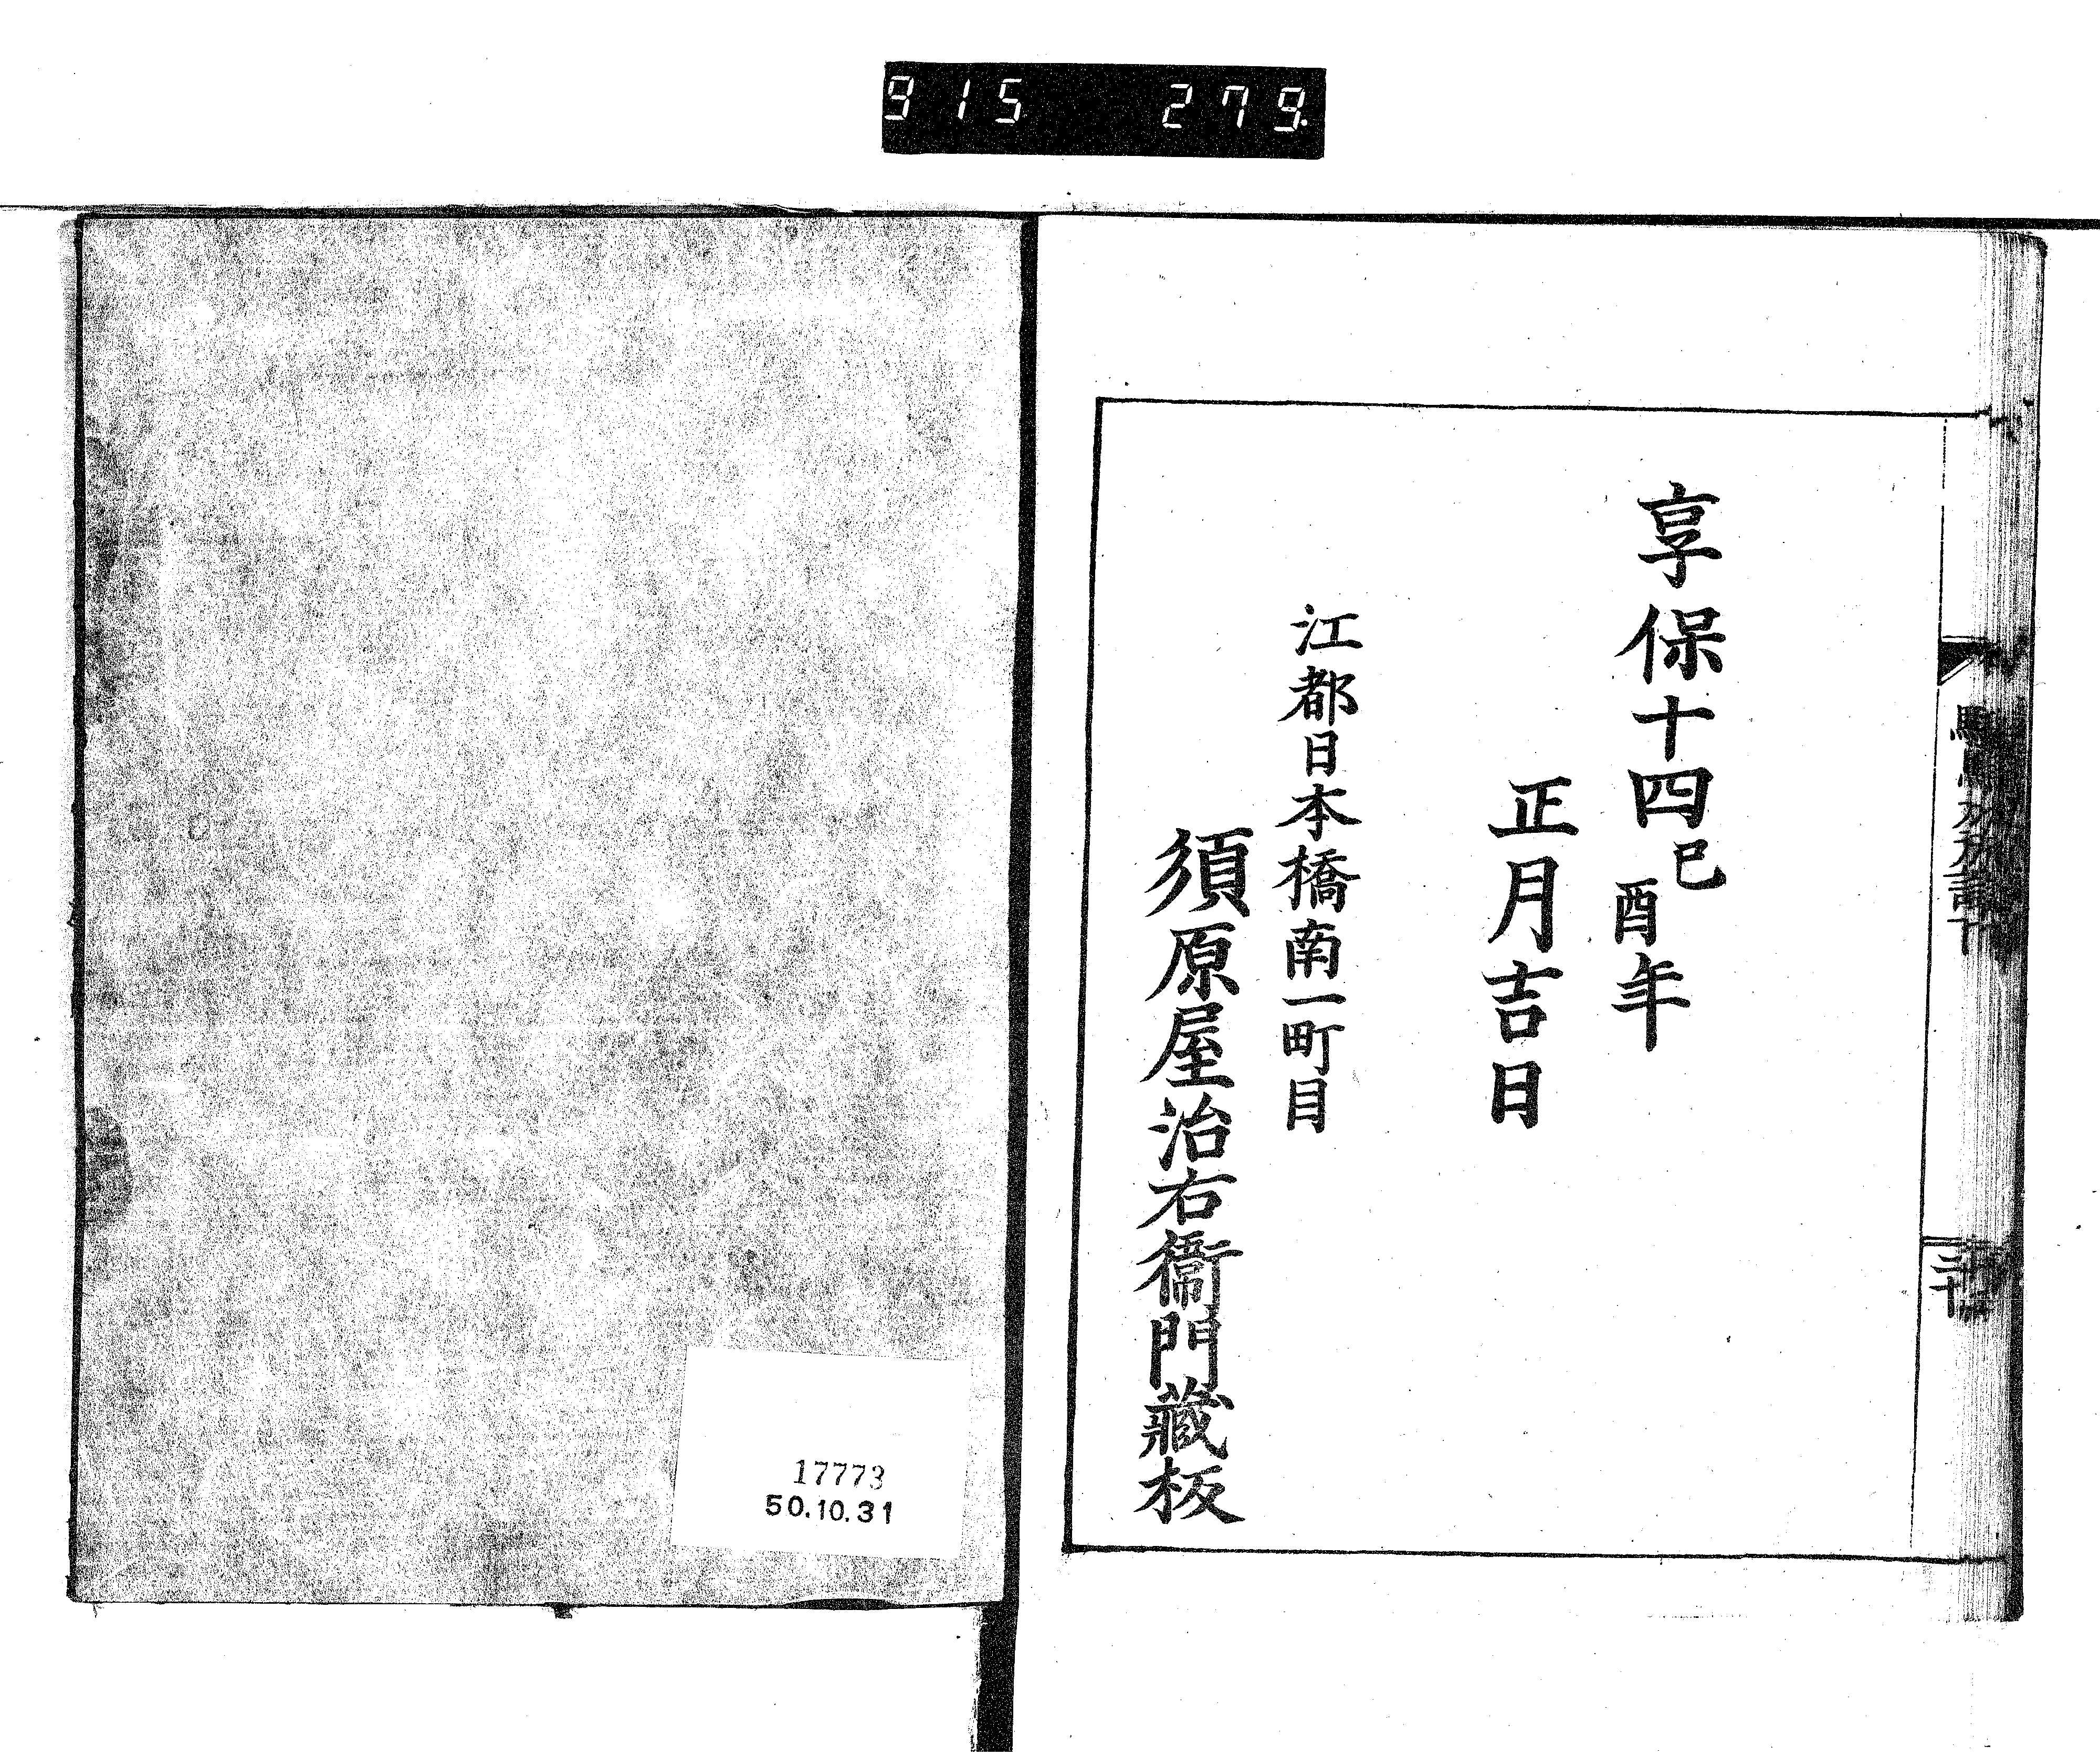 915 279
享保十四己酉年
正月吉日
江都日本橋南一町目
須原屋治右衛門蔵板
17773
50.10.31